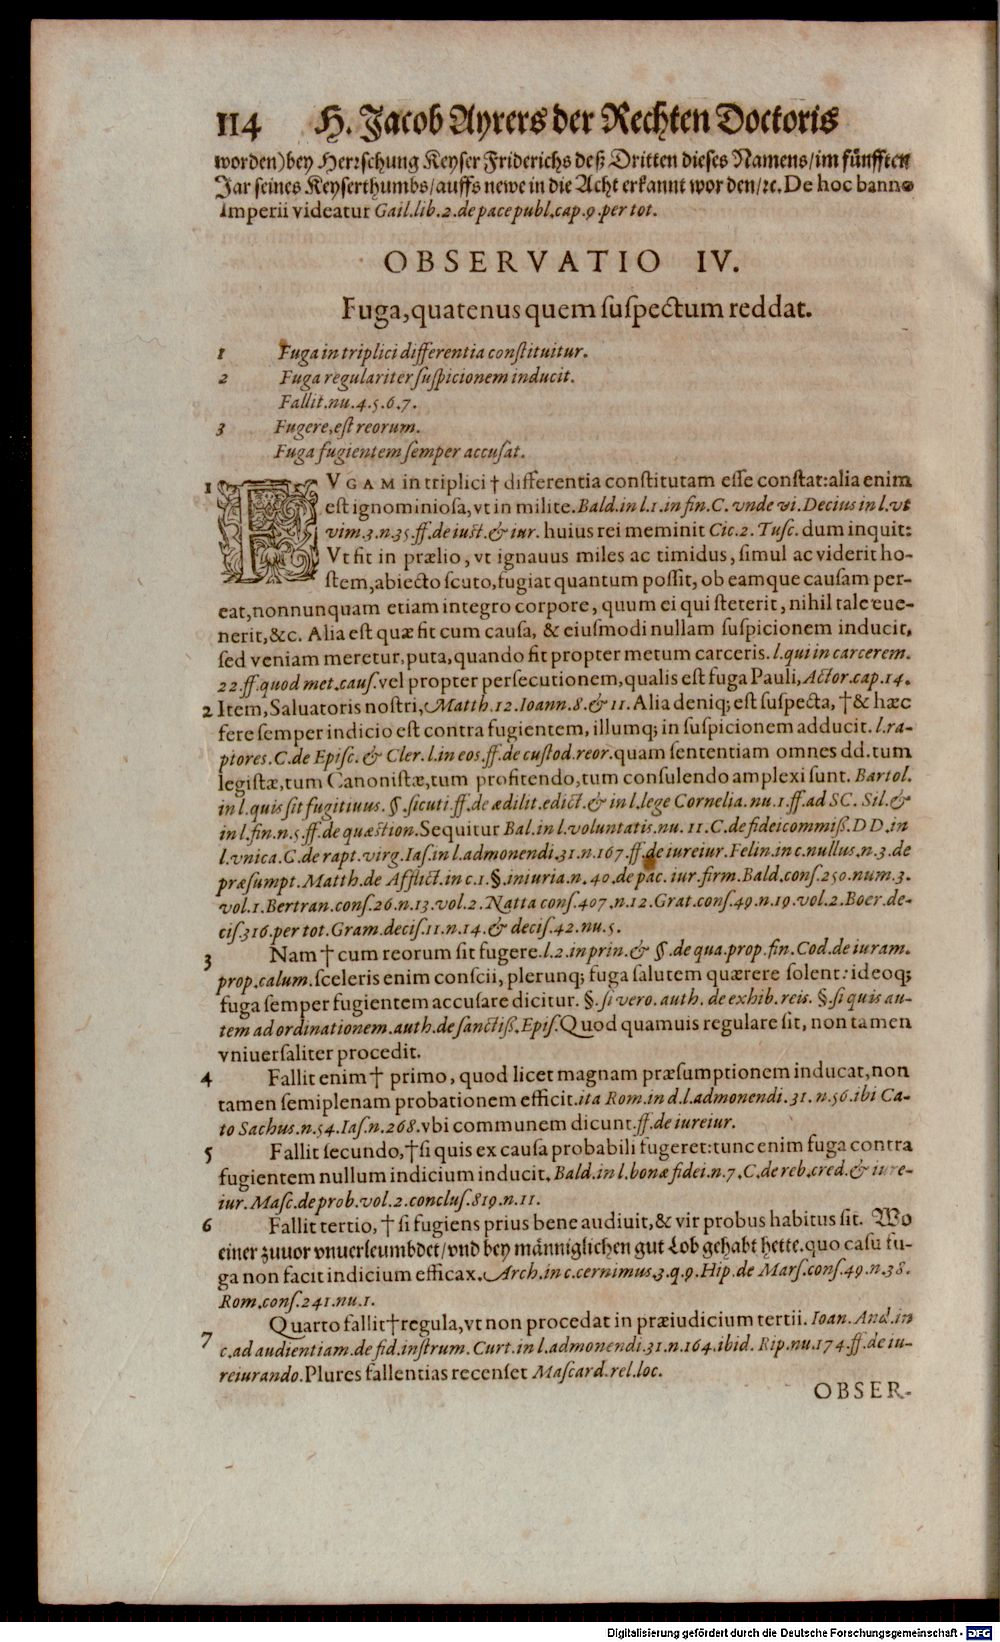 114 H. Jacob Ayrers der Rechten Doctoris
worden) bey Herrschung Keyser Friderichs deß Dritten dieses Namens/im fünfften
Jar seines Keyserthumbs/auffs newe in die Acht erkannt worden/ꝛc. De hoc banno
Imperii videatur Gail.lib.2.de pace publ.cap.9.per tot.
OBSERVATIO IV.
Fuga, quatenus quem suspectum reddat.
1 Fuga in triplici differentia constituitur.
2 Fuga regulariter suspicionem inducit.
Fallit.nu.4.5.6.7.
3 Fugere, est reorum.
Fuga fugientem semper accusat.
1 FVGAM in triplici † differentia constitutam esse constat: alia enim
est ignominiosa, vt in milite. Bald.in l.1.in fin.C.vnde vi.Decius in l.vt
vim.3.n.35.ff.de iust.& iur. huius rei meminit Cic.2.Tusc. dum inquit:
Vt fit in prælio, vt ignauus miles ac timidus, simul ac viderit ho-
stem, abiecto scuto, fugiat quantum possit, ob eamque causam per-
eat, nonnunquam etiam integro corpore, quum ei qui steterit, nihil tale eue-
nerit, &c. Alia est quæ fit cum causa, & eiusmodi nullam suspicionem inducit,
sed veniam meretur, puta, quando fit propter metum carceris. l.qui in carcerem.
22.ff.quod met.caus. vel propter persecutionem, qualis est fuga Pauli, Actor.cap.14.
2 Item, Saluatoris nostri, Matth.12.Ioann.8.& 11. Alia deniq; est suspecta, † & hæc
fere semper indicio est contra fugientem, illumq; in suspicionem adducit. l.ra-
ptores.C.de Episc.& Cler.l.in eos.ff.de custod.reor. quam sententiam omnes dd. tum
legistæ, tum Canonistæ, tum profitendo, tum consulendo amplexi sunt. Bartol.
in l.quis sit fugitiuus.§.sicuti.ff.de ædilit.edict.& in l.lege Cornelia.nu.1.ff.ad SC.Sil.&
in l.fin.n.5.ff.de quæstion. Sequitur Bal.in l.voluntatis.nu.11.C.de fideicommiß.DD.in
l.vnica.C.de rapt.virg.Ias.in l.admonendi.31.n.167.ff.de iureiur.Felin.in c.nullus.n.3.de
præsumpt.Matth.de Afflict.in c.1.§.iniuria.n.40.de pac.iur.firm.Bald.cons.250.num.3.
vol.1.Bertran.cons.26.n.13.vol.2.Natta cons.407.n.12.Grat.cons.49.n.19.vol.2.Boer.de-
cis.316.per tot.Gram.decis.11.n.14.& decis.42.nu.5.
3 Nam † cum reorum sit fugere. l.2.in prin.& §.de qua.prop.fin.Cod.de iuram.
prop.calum. sceleris enim conscii, plerunq; fuga salutem quærere solent: ideoq;
fuga semper fugientem accusare dicitur. §.si vero.auth.de exhib.reis.§.si quis au-
tem ad ordinationem.auth.de sanctiß.Epis. Quod quamuis regulare sit, non tamen
vniuersaliter procedit.
4 Fallit enim † primo, quod licet magnam præsumptionem inducat, non
tamen semiplenam probationem efficit. ita Rom.in d.l.admonendi.31.n.56.ibi Ca-
to Sachus.n.54.Ias.n.268. vbi communem dicunt. ff.de iureiur.
5 Fallit secundo, † si quis ex causa probabili fugeret: tunc enim fuga contra
fugientem nullum indicium inducit. Bald.in l.bonæ fidei.n.7.C.de reb.cred.& iure-
iur.Masc.de prob.vol.2.conclus.819.n.11.
6 Fallit tertio, † si fugiens prius bene audiuit, & vir probus habitus sit. Wo
einer zuuor vnuerleumbdet/vnd bey männiglichen gut Lob gehabt hette. quo casu fu-
ga non facit indicium efficax. Arch.in c.cernimus.3.q.9.Hip.de Mars.cons.49.n.38.
Rom.cons.241.nu.1.
7 Quarto fallit † regula, vt non procedat in præiudicium tertii. Ioan.And.in
c.ad audientiam.de fid.instrum.Curt.in l.admonendi.31.n.164.ibid.Rip.nu.174.ff.de iu-
reiurando. Plures fallentias recenset Mascard.rel.loc.
OBSER-
Digitalisierung gefördert durch die Deutsche Forschungsgemeinschaft - DFG